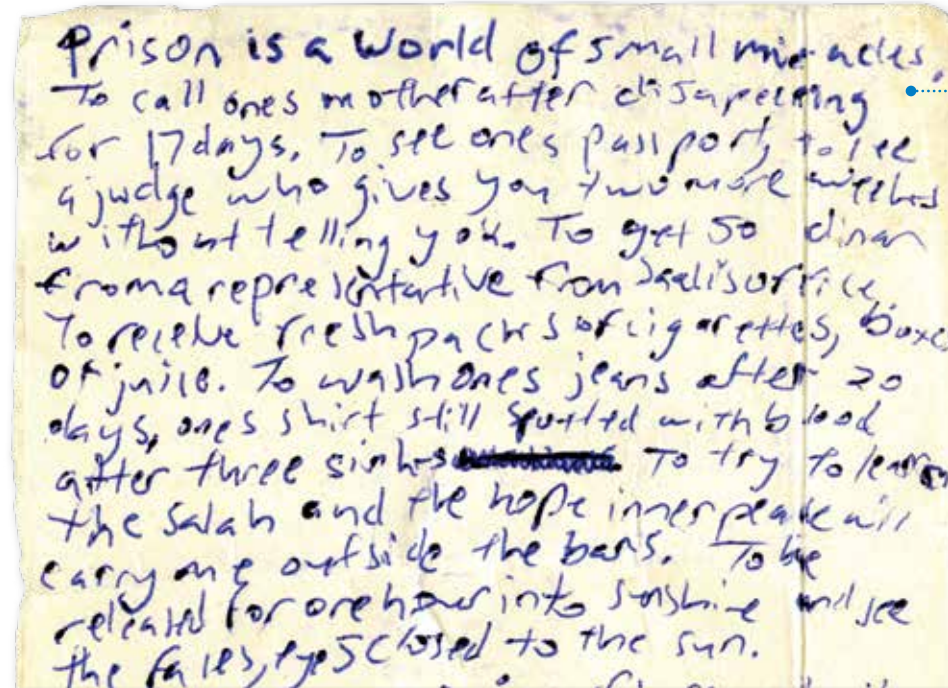 Prison is a world of small miracles.
To call ones mother after disapearing
for 17 days. To see ones passport, to see
a judge who gives you two more weeks
without telling you. To get 50 dinar
from a representative from Saadis office
To receive fresh packs of cigarettes, boxes
of juice. To wash ones jeans after 20
days, ones shirt still spotted with blood
after three sinks To try to learn
the Salah and the hope inner peace will
carry me outside the bars. To be
released for one hour into sunshine and see
the faces, eyes closed to the sun.